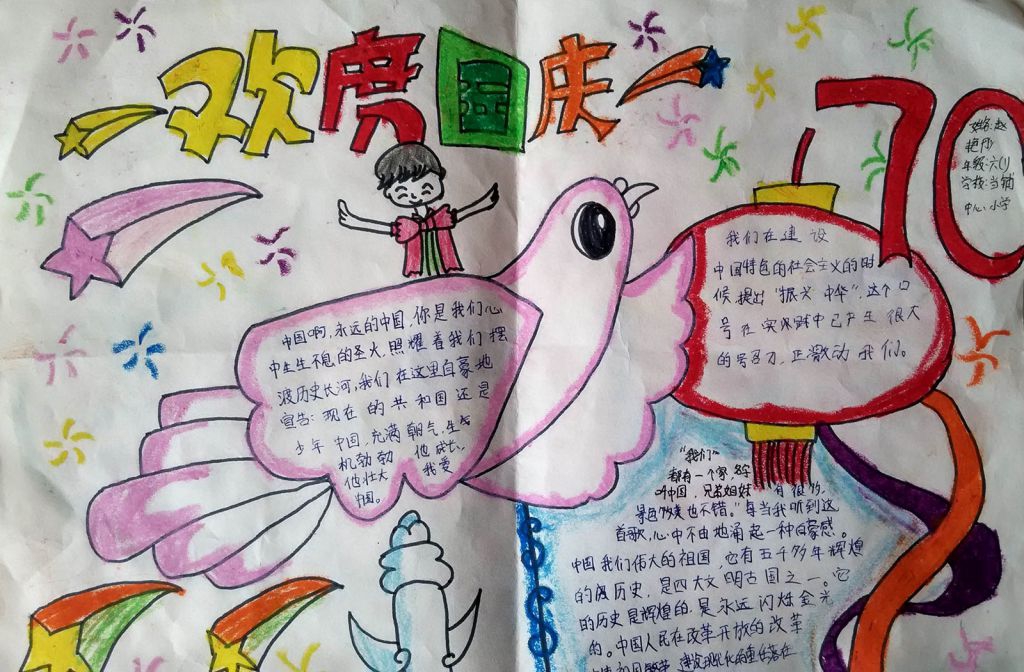 欢度国庆
70
姓名:赵
艳丹
年级:六(1)
学校:当铺
中心小学
中国啊,永远的中国,你是我们心
中生生不息的圣火,照耀着我们摆
渡历史长河,我们在这里自豪地
宣告:现在的共和国还是
少年中国,充满朝气,生
机勃勃 他成长,
他壮大 我爱
中国。
我们在建设
中国特色的社会主义的时
候,提出"振兴中华",这个口
号在实践中已产生很大
的号召力,正激动我们。
"我们
都有一个家,名字
叫中国,兄弟姐妹 有很多,
景色 也不错。"每当我听到这
首歌,心中不由地涌起一种自豪感。
中国我们伟大的祖国,它有五千多年辉煌
的 历史,是四大文明古国之一。它
的历史是辉煌的是永远闪烁金光
的。中国人民在改革开放的改革